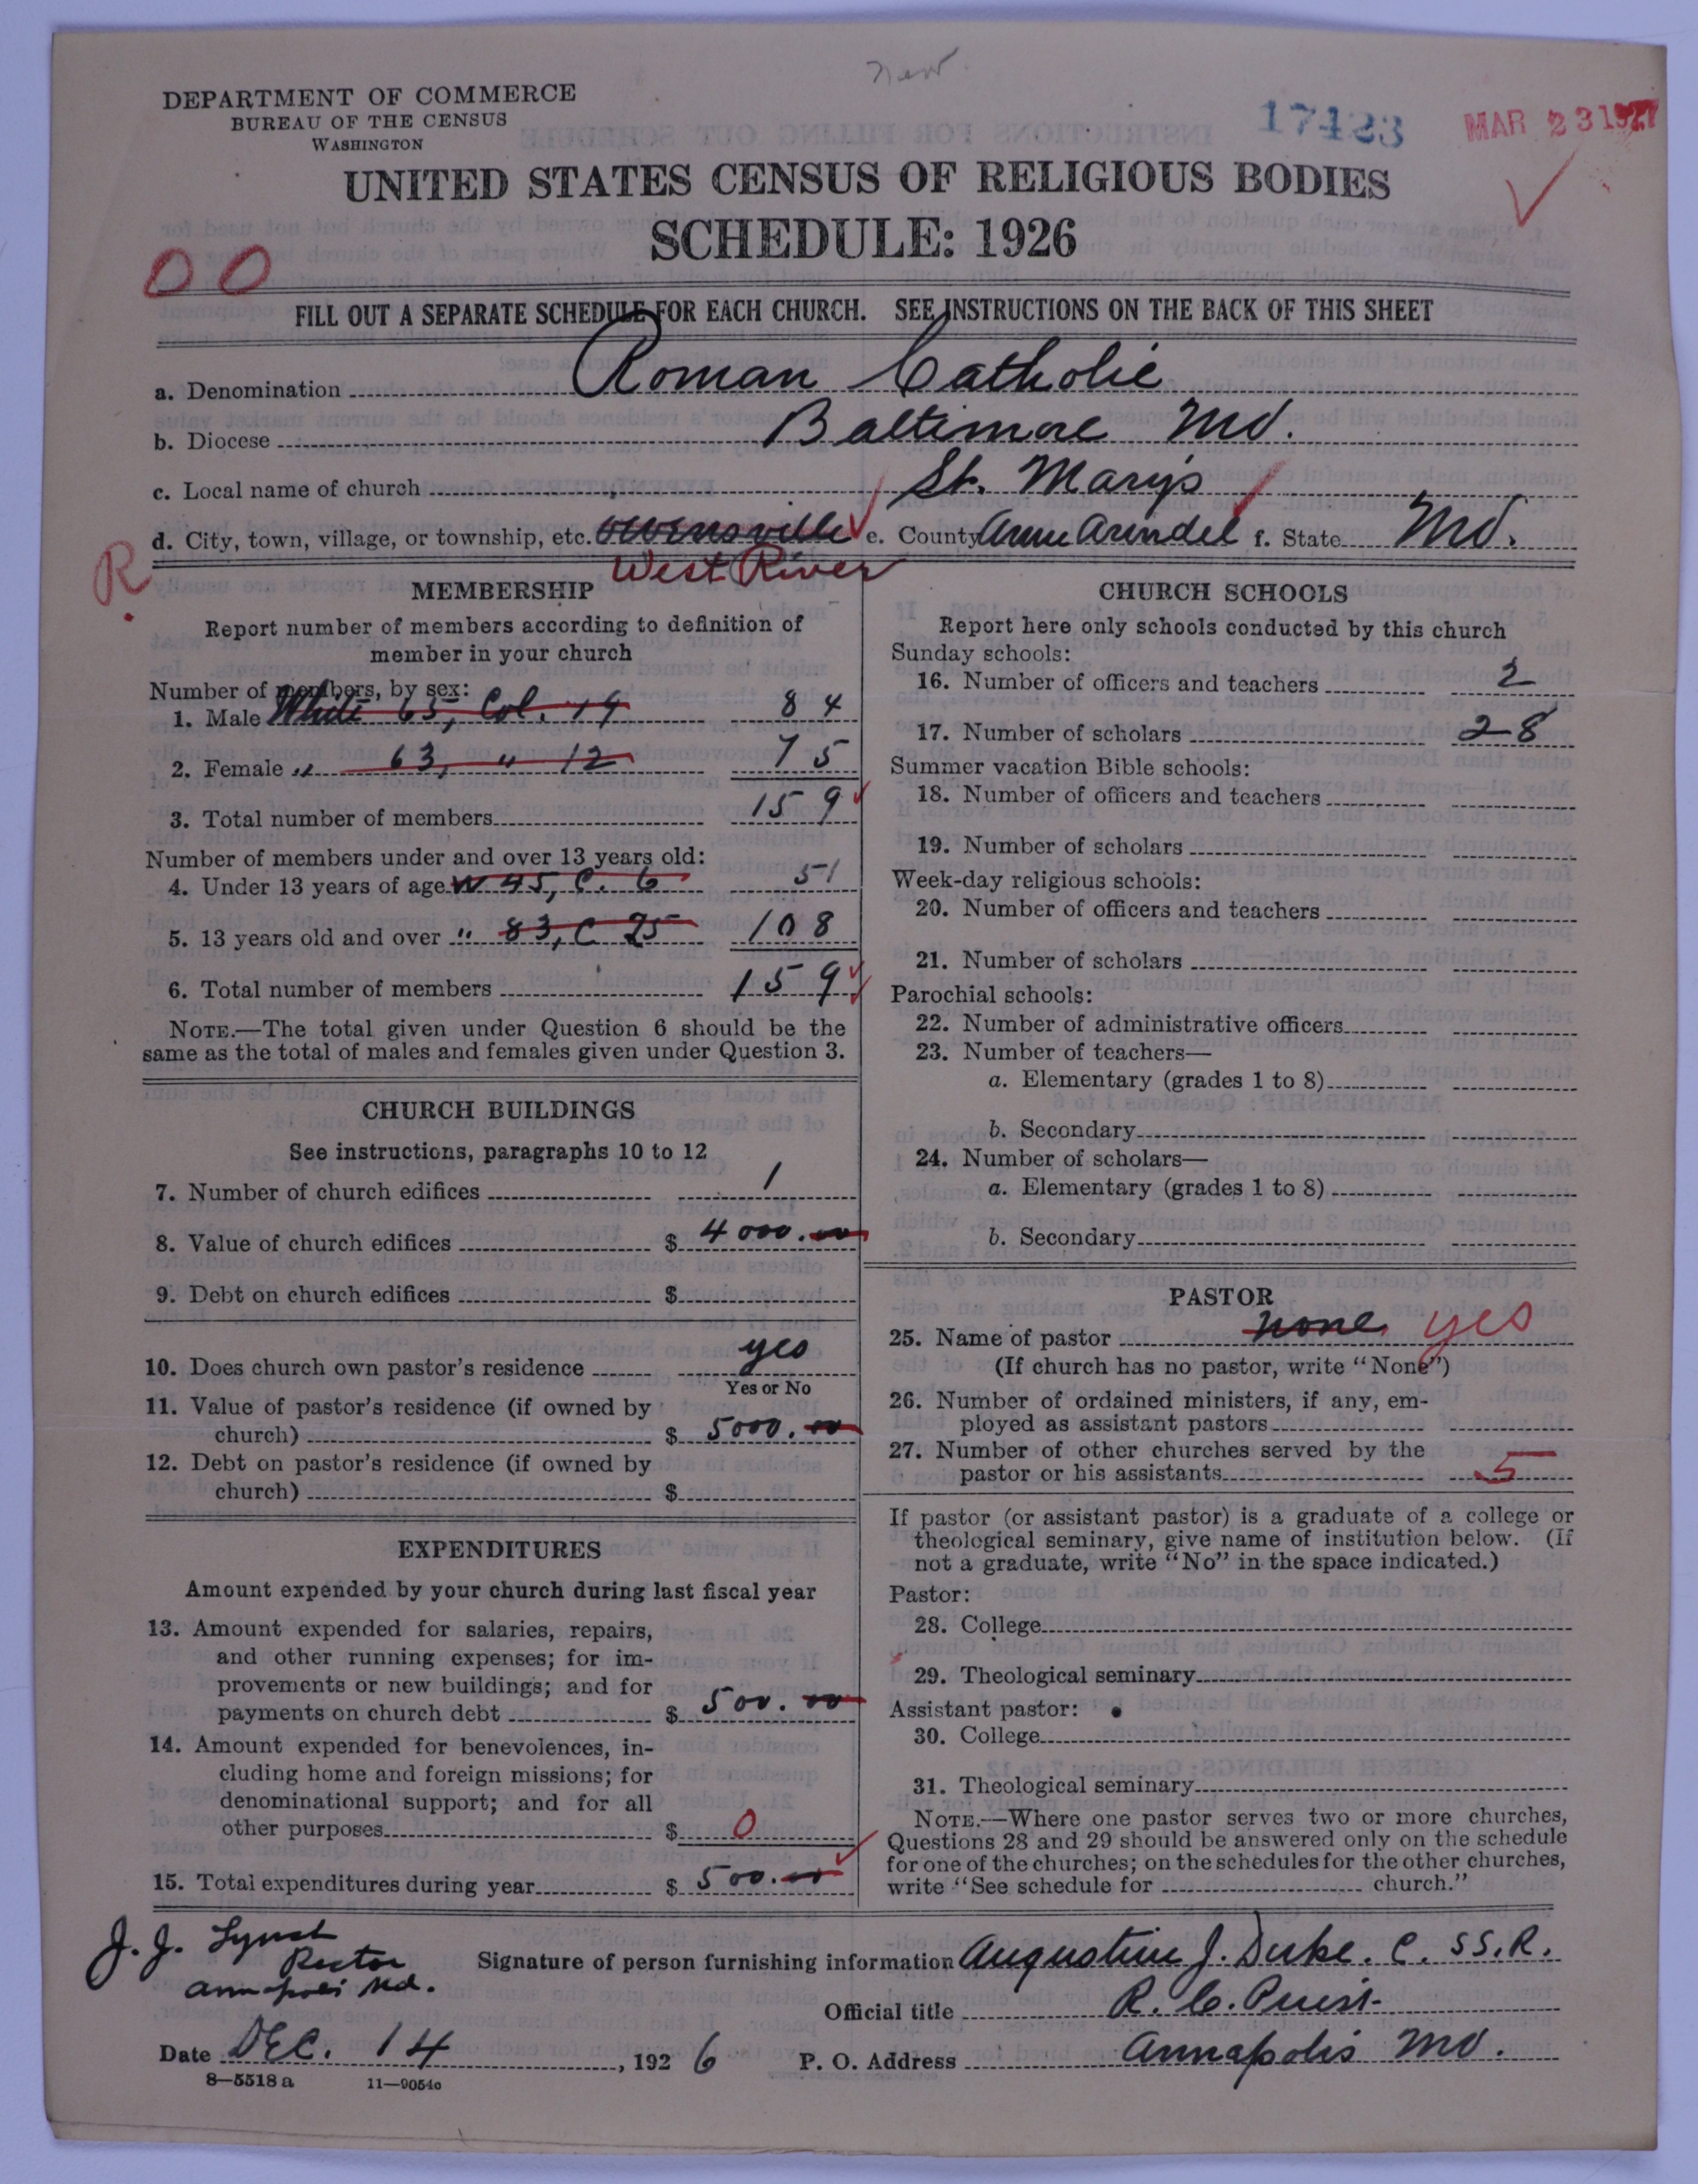 New
DEPARTMENT OF COMMERCE
BUREAU OF THE CENSUS
WASHINGTON
17423
MAR 23 1927
UNITED STATES CENSUS OF RELIGIOUS BODIES
SCHEDULE: 1926
00
FILL OUT A SEPARATE SCHEDULE FOR EACH CHURCH. SEE INSTRUCTIONS ON THE BACK OF THIS SHEET
a. Denomination Roman Catholic
b. Diocese Baltimore Md.
c. Local name of church St. Mary's
d. City, town, village, or township, etc. Owensville e. County Anne Arundel f. State Md.
R. West River
MEMBERSHIP
Report number of members according to definition of
member in your church
Number of members, by sex:
1. Male White 65, Col. 19 84
2. Female " 63, " 12 75
3. Total number of members 159
Number of members under and over 13 years old:
4. Under 13 years of age W 45, C. 6 51
5. 13 years old and over " 83, C 25 108
6. Total number of members 159
NOTE.—The total given under Question 6 should be the
same as the total of males and females given under Question 3.
CHURCH BUILDINGS
See instructions, paragraphs 10 to 12
7. Number of church edifices 1
8. Value of church edifices $ 4000.00
9. Debt on church edifices $
10. Does church own pastor's residence yes
Yes or No
11. Value of pastor's residence (if owned by
church) $ 5000.00
12. Debt on pastor's residence (if owned by
church) $
EXPENDITURES
Amount expended by your church during last fiscal year
13. Amount expended for salaries, repairs,
and other running expenses; for im-
provements or new buildings; and for
payments on church debt $ 500.00
14. Amount expended for benevolences, in-
cluding home and foreign missions; for
denominational support; and for all
other purposes $ 0
15. Total expenditures during year $ 500.00
CHURCH SCHOOLS
Report here only schools conducted by this church
Sunday schools:
16. Number of officers and teachers 2
17. Number of scholars 28
Summer vacation Bible schools:
18. Number of officers and teachers
19. Number of scholars
Week-day religious schools:
20. Number of officers and teachers
21. Number of scholars
Parochial schools:
22. Number of administrative officers
23. Number of teachers—
a. Elementary (grades 1 to 8)
b. Secondary
24. Number of scholars—
a. Elementary (grades 1 to 8)
b. Secondary
PASTOR
25. Name of pastor none. yes
(If church has no pastor, write "None")
26. Number of ordained ministers, if any, em-
ployed as assistant pastors
27. Number of other churches served by the
pastor or his assistants 5
If pastor (or assistant pastor) is a graduate of a college or
theological seminary, give name of institution below. (If
not a graduate, write "No" in the space indicated.)
Pastor:
28. College
29. Theological seminary
Assistant pastor:
30. College
31. Theological seminary
NOTE.—Where one pastor serves two or more churches,
Questions 28 and 29 should be answered only on the schedule
for one of the churches; on the schedules for the other churches,
write "See schedule for church."
J. J. Lynch
Rector
Annapolis Md.
Signature of person furnishing information Augustine J. Duke. C. SS. R.
Official title R. C. Priest
Date DEC. 14, 1926 P. O. Address Annapolis Md.
8—5518 a 11—9054c